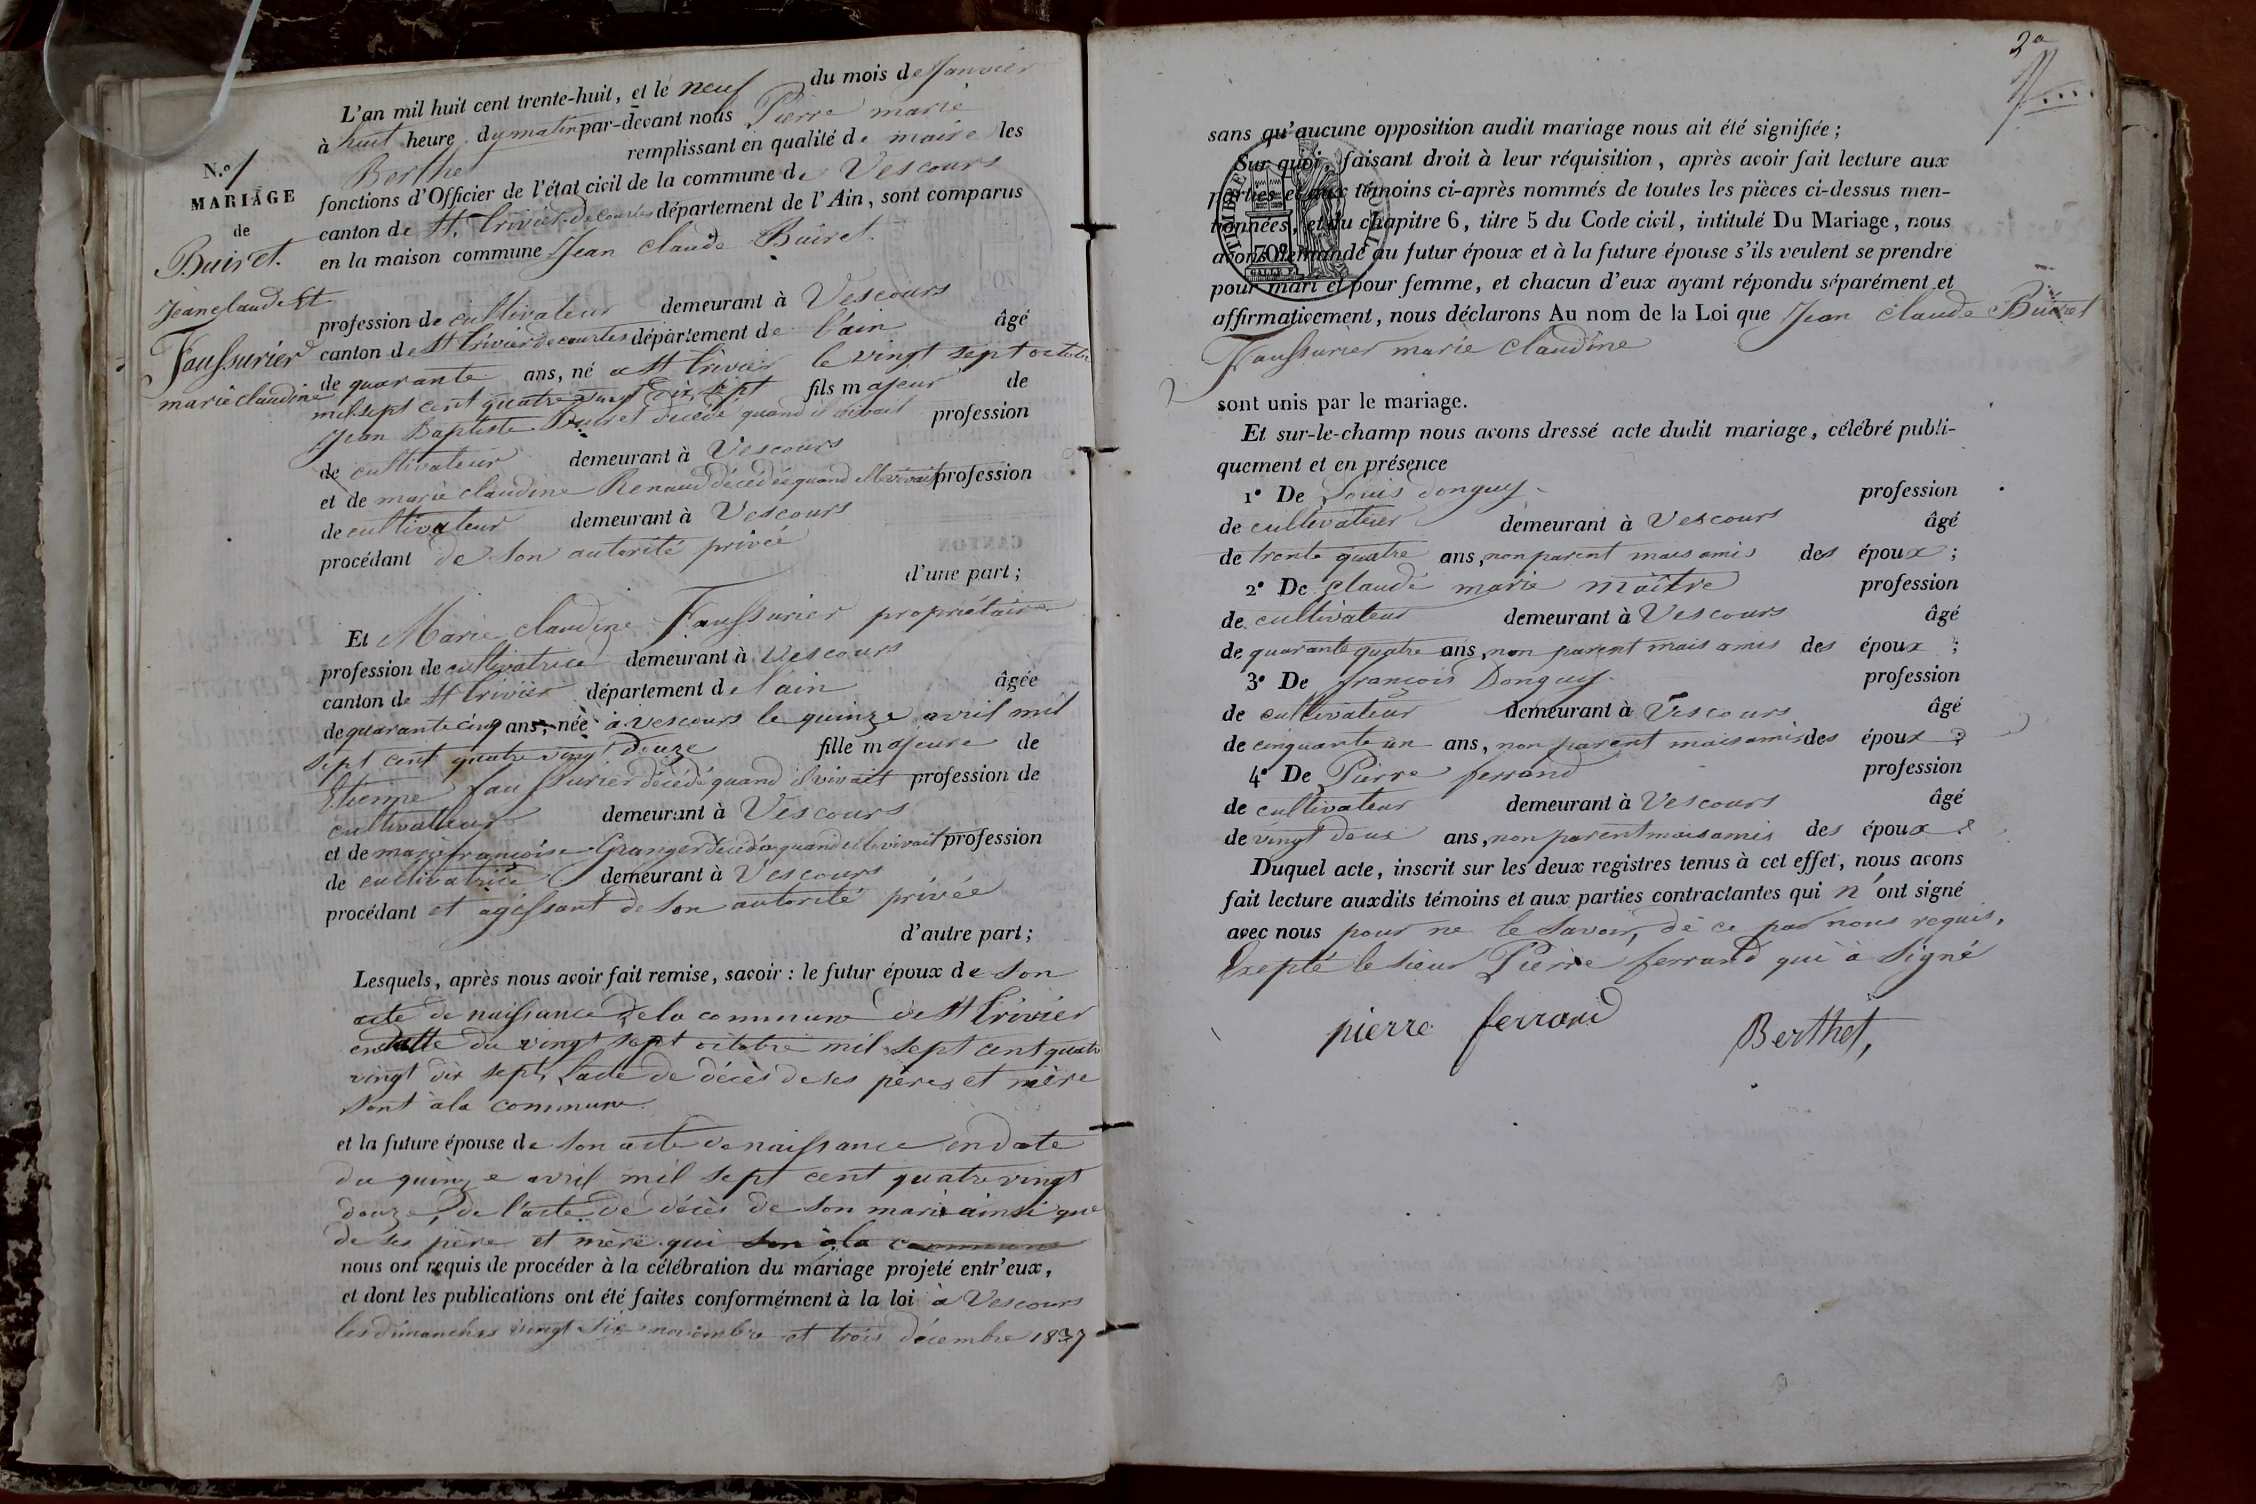 L'an mil huit cent trente-huit, et le neuf du mois de Janvier
à huit heure du matin par-devant nous Pierre marie
Berthet remplissant en qualité de maire les
fonctions d'Officier de l'état civil de la commune de Vescours
canton de St. trivier de courtes département de l'Ain, sont comparus
en la maison commune Jean claude Buiret
N.o 1
MARIAGE
de
Buiret
Jean claude Et
Faussurier
marie claudine
profession de cultivateur demeurant à Vescours
canton de St trivier de courtes département de l'ain âgé
de quarante ans, né a St trivier le vingt sept octobre
mil sept cent quatre vingt dix sept fils majeur de
Jean Baptiste Buiret décédé quand il vivait profession
de cultivateur demeurant à Vescours
et de marie claudine Renaud décédée quand elle vivait profession
de cultivateur demeurant à Vescours
procédant de son autorité privée
d'une part ;
Et Marie claudine Faussurier propriétaire
profession de cultivatrice demeurant à Vescours
canton de St trivier département de l'ain âgée
de quarante cinq ans, née à vescours le quinze avril mil
sept cent quatre vingt douze fille majeure de
Etienne faussurier décédé quand il vivait profession de
cultivateur demeurant à Vescours
et de marie françoise Granger décédée quand elle vivait profession
de cultivatrice demeurant à Vescours
procédant et agissant de son autorité privée
d'autre part ;
Lesquels, après nous avoir fait remise, savoir : le futur époux de son
acte de naissance de la commune de St trivier
en datte du vingt sept octobre mil sept cent quatre
vingt dix sept, L'acte de décès de ses pères et mère
sont à la commune
et la future épouse de son acte de naissance en date
du quinze avril mil sept cent quatre vingt
douze, de l'acte de décès de son mari ainsi que
de ses père et mère qui son à la commune
nous ont requis de procéder à la célébration du mariage projeté entr'eux,
et dont les publications ont été faites conformément à la loi à Vescours
les dimanches vingt six novembre et trois décembre 1837
2
sans qu'aucune opposition audit mariage nous ait été signifiée ;
Sur quoi, faisant droit à leur réquisition, après avoir fait lecture aux
parties et aux témoins ci-après nommés de toutes les pièces ci-dessus men-
tionnées, et du chapitre 6, titre 5 du Code civil, intitulé Du Mariage, nous
avons demandé au futur époux et à la future épouse s'ils veulent se prendre
pour mari et pour femme, et chacun d'eux ayant répondu séparément et
affirmativement, nous déclarons Au nom de la Loi que Jean claude Buiret
Faussurier marie claudine
sont unis par le mariage.
Et sur-le-champ nous avons dressé acte dudit mariage, célébré publi-
quement et en présence
1° De Louis donguy profession
de cultivateur demeurant à Vescours âgé
de trente quatre ans, non parent mais amis des époux ;
2° De claude marie maître profession
de cultivateur demeurant à Vescours âgé
de quarante quatre ans, non parent mais amis des époux ;
3° De françois Donguy profession
de cultivateur demeurant à Vescours âgé
de cinquante un ans, non parent mais amis des époux ;
4° De Pierre ferrand profession
de cultivateur demeurant à Vescours âgé
de vingt deux ans, non parent mais amis des époux ;
Duquel acte, inscrit sur les deux registres tenus à cet effet, nous avons
fait lecture auxdits témoins et aux parties contractantes qui n'ont signé
avec nous pour ne le savoir, de ce par nous requis,
Exepté le sieur Pierre ferrand qui à signé
pierre ferrand Berthet,